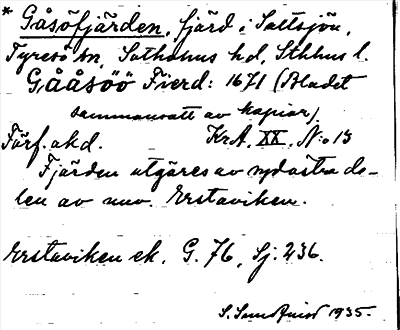 * Gåsöfjärden, fjärd i Saltsjön,
Tyresö sn, Sotholms hd, Sthlms l.
GÅÅSÖÖ Fierd: 1671 (Bladet
sammansatt av kopior).
Förf. okd. KrA. XX. N:o 13
Fjärden utgöres av nydöstra de-
len av nuv. Erstaviken.
Erstaviken ek. G. 76, Sj. 236.
S. Sundqvist 1935.